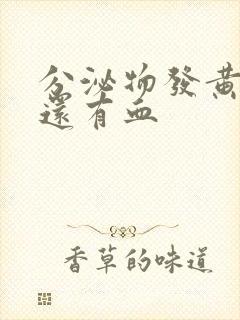 分泌物發黃
還有血
香草的味道